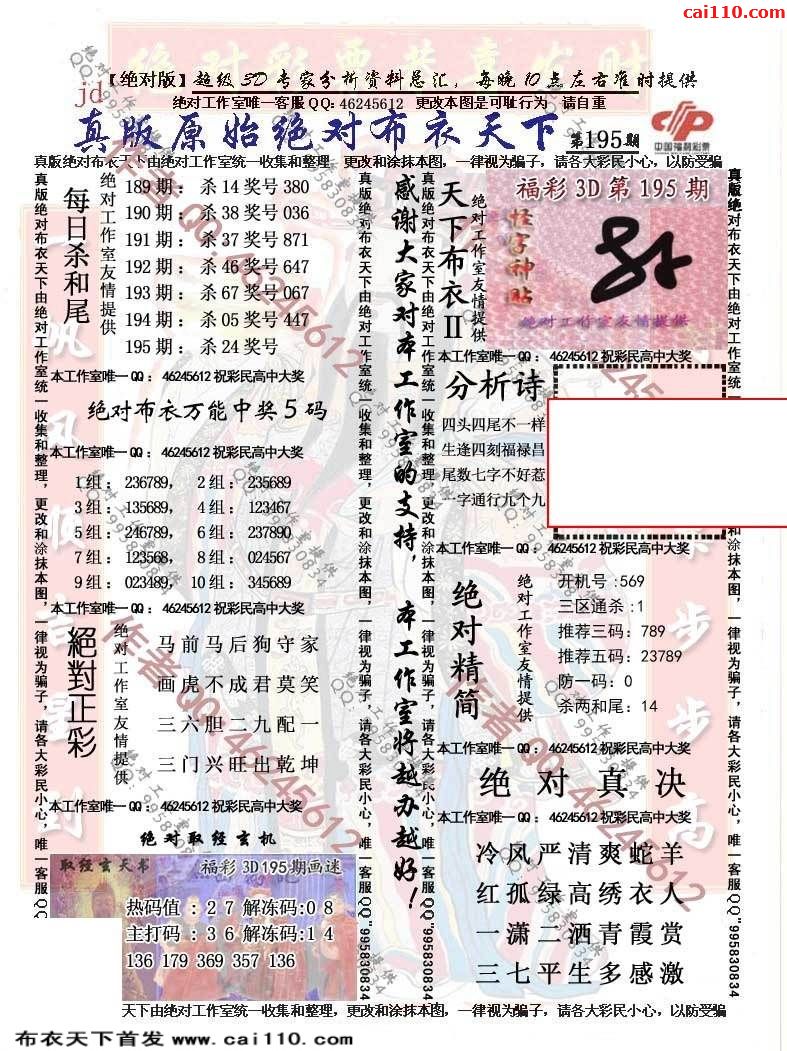 cai110.com
绝对彩票恭喜发财
【绝对版】超级3D专家分析资料总汇，每晚10点左右准时提供
jd
绝对工作室唯一客服QQ：46245612 更改本图是可耻行为 请自重
真版原始绝对布衣天下 第195期
中国福利彩票
真版绝对布衣天下由绝对工作室统一收集和整理，更改和涂抹本图，一律视为骗子，请各大彩民小心，以防受骗
真版绝对布衣天下由绝对工作室统一收集和整理，更改和涂抹本图，一律视为骗子，请各大彩民小心，唯一客服QQ
每日杀和尾
绝对工作室友情提供
189期：杀14奖号380
190期：杀38奖号036
191期：杀37奖号871
192期：杀46奖号647
193期：杀67奖号067
194期：杀05奖号447
195期：杀24奖号
本工作室唯一QQ：46245612祝彩民高中大奖
绝对布衣万能中奖5码
本工作室唯一QQ：46245612祝彩民高中大奖
1组：236789，2组：235689
3组：135689，4组：123467
5组：246789，6组：237890
7组：123568，8组：024567
9组：023489，10组：345689
本工作室唯一QQ：46245612祝彩民高中大奖
絕對正彩
绝对工作室友情提供
马前马后狗守家
画虎不成君莫笑
三六胆二九配一
三门兴旺出乾坤
本工作室唯一QQ：46245612祝彩民高中大奖
绝对取经玄机
取经玄天书 福彩3D195期画迷
热码值：27解冻码：08
主打码：36解冻码：14
136 179 369 357 136
真版绝对布衣天下由绝对工作室统一收集和整理，更改和涂抹本图，一律视为骗子，请各大彩民小心，唯一客服QQ"995830834
感谢大家对本工作室的支持，本工作室将越办越好！
真版绝对布衣天下由绝对工作室统一收集和整理，更改和涂抹本图，一律视为骗子，请各大彩民小心，唯一客服QQ"995830834
天下布衣II
绝对工作室友情提供
福彩3D第195期
怪字神贴
绝对工作室友情提供
本工作室唯一QQ：46245612祝彩民高中大奖
分析诗
四头四尾不一样
生逢四刻福禄昌
尾数七字不好惹
一字通行九个九
本工作室唯一QQ：46245612祝彩民高中大奖
绝对精简
绝对工作室友情提供
开机号：569
三区通杀：1
推荐三码：789
推荐五码：23789
防一码：0
杀两和尾：14
本工作室唯一QQ：46245612祝彩民高中大奖
绝对真决
本工作室唯一QQ：46245612祝彩民高中大奖
冷风严清爽蛇羊
红孤绿高绣衣人
一潇二洒青霞赏
三七平生多感激
真版绝对布衣天下由绝对工作室统一收集和整理，更改和涂抹本图，一律视为骗子，请各大彩民小心，唯一客服QQ"995830834
天下由绝对工作室统一收集和整理，更改和涂抹本图，一律视为骗子，请各大彩民小心，以防受骗
布衣天下首发 www.cai110.com